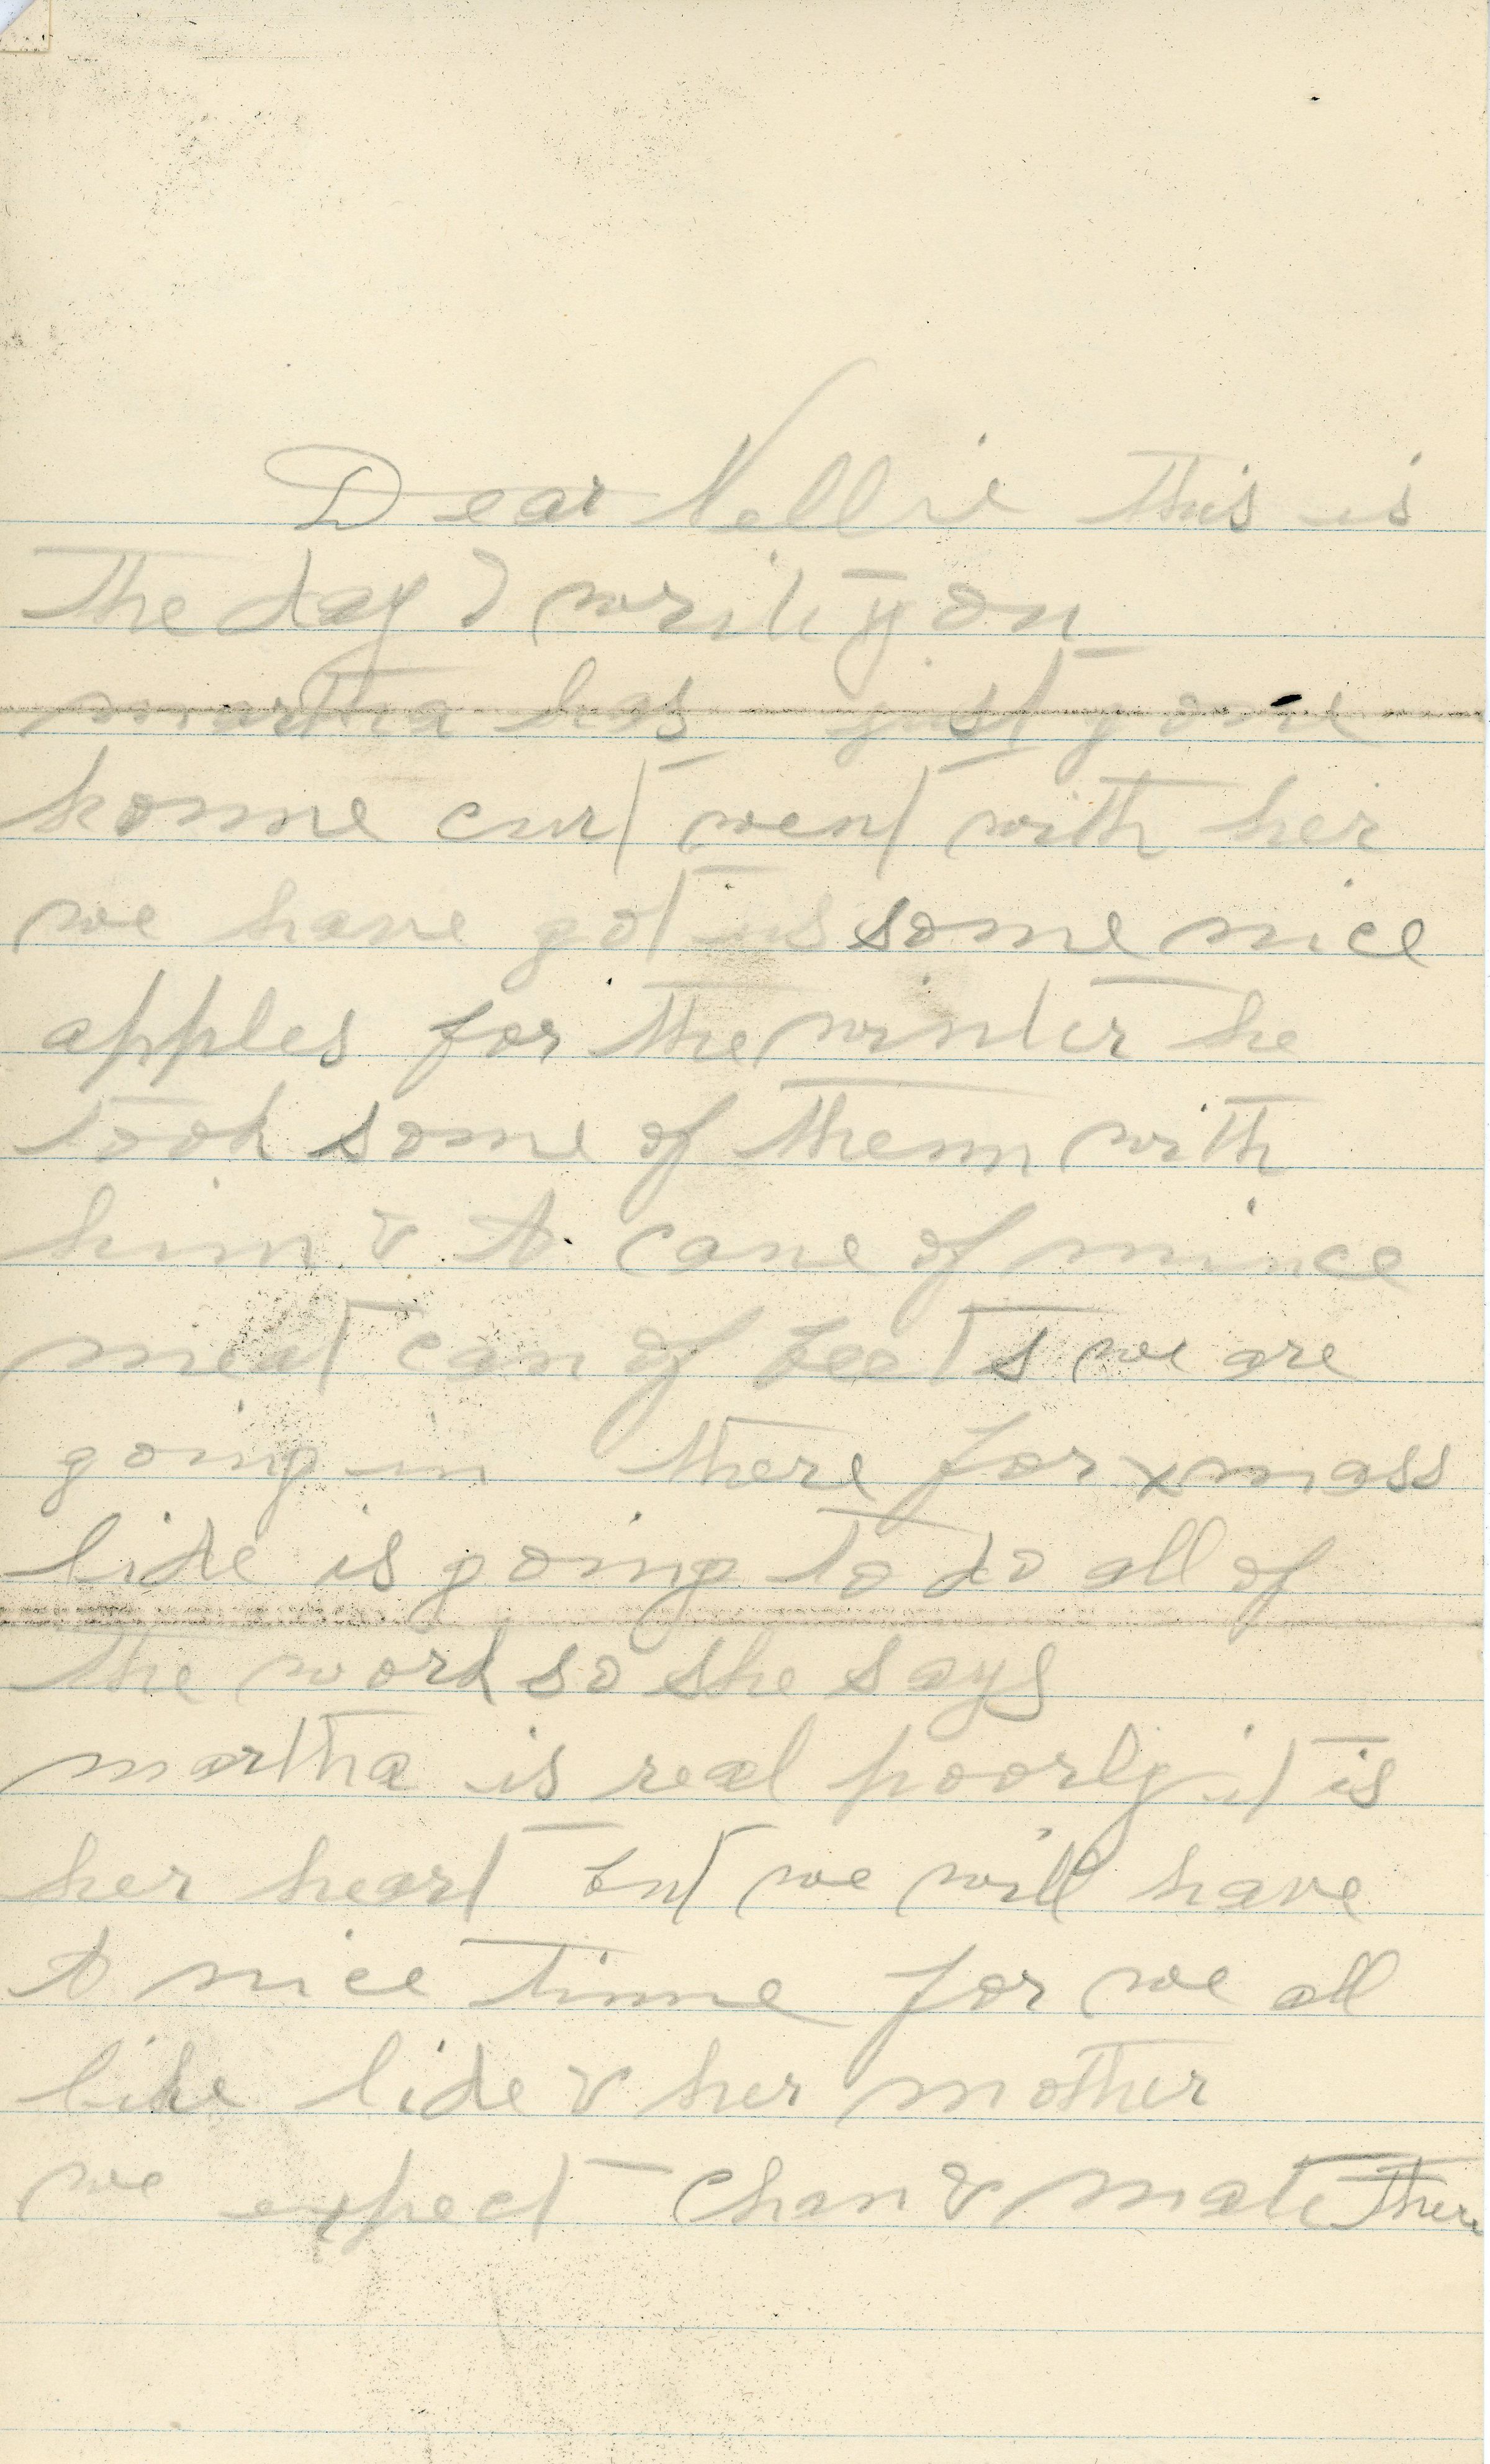 Dear Nellie this is
the day I write you
martha has just gone
home curt went with her
we have got us some nice
apples for the winter he
took some of them with
him & A cane of mince
meat can of beets we are
going in there for xmass
lide is going to do all of
the work so she says
martha is real poorly it is
her heart but we will have
A nice time for we all
like lide & her mother
we expect chan & mate there